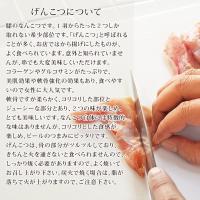 げんこつについて
膝のなんこつです。1羽からたった2つしか
取れない希少部位です。「げんこつ」と呼ばれる
ことが多く、お店ではから揚げにしたものが、
よく食べられています。意外と知られていませ
んが、串でも大変美味しくいただけます。
コラーゲンやグルコサミンがたっぷりで、
美肌効果や軟骨強化の効果もあり、食べやす
いので女性に大人気です。
軟骨ですが柔らかく、コリコリした部位と
ジューシーな部分とあり、2つの味が楽しい
とても美味しいです。なんこつ自体には特徴的
な味はありませんが、コリコリとした食感が
楽しめ、ビールのつまみにピッタリです。
げんこつは、骨の部分がツルツルしており、
きちんと火を通さないと食べられませんので、
しっかり焼く必要がありますので、よく焼いて
お召し上がり下さい。炭火で焼く場合は、脂が
落ちて火が上がりますので、ご注意下さい。